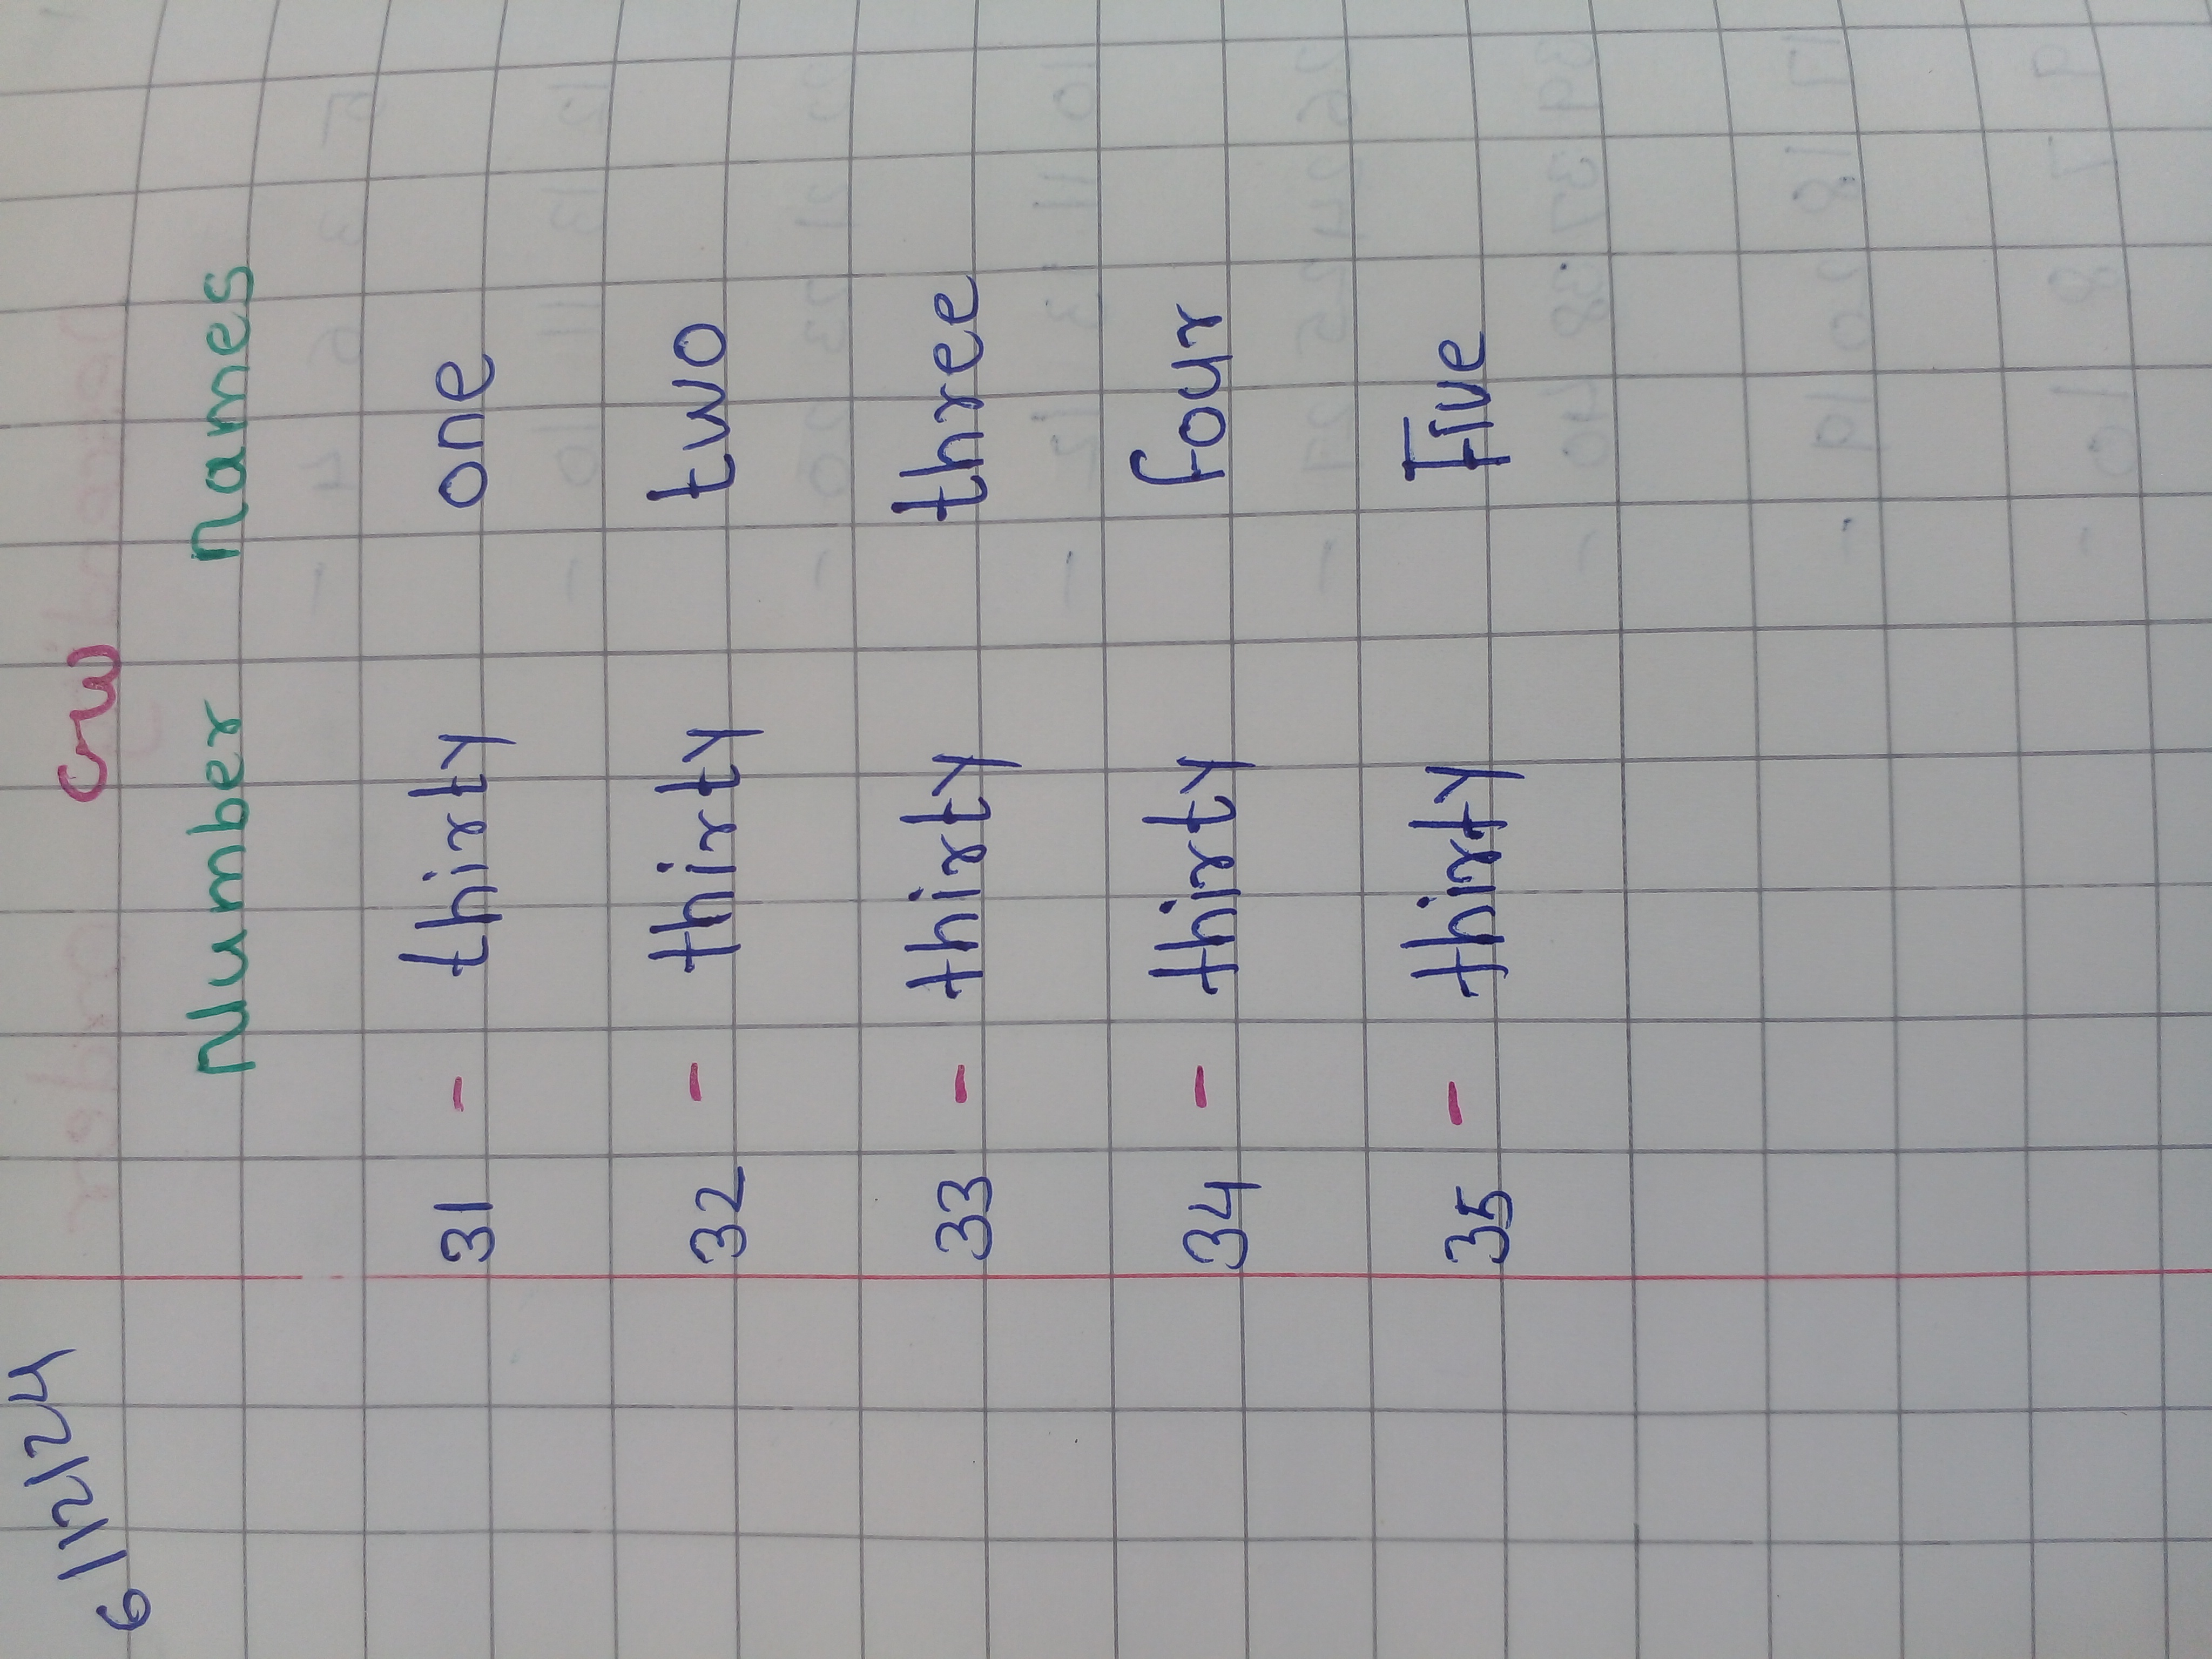 6/12/24
CW
Number names
31 - thirty one
32 - thirty two
33 - thirty three
34 - thirty four
35 - thirty Five